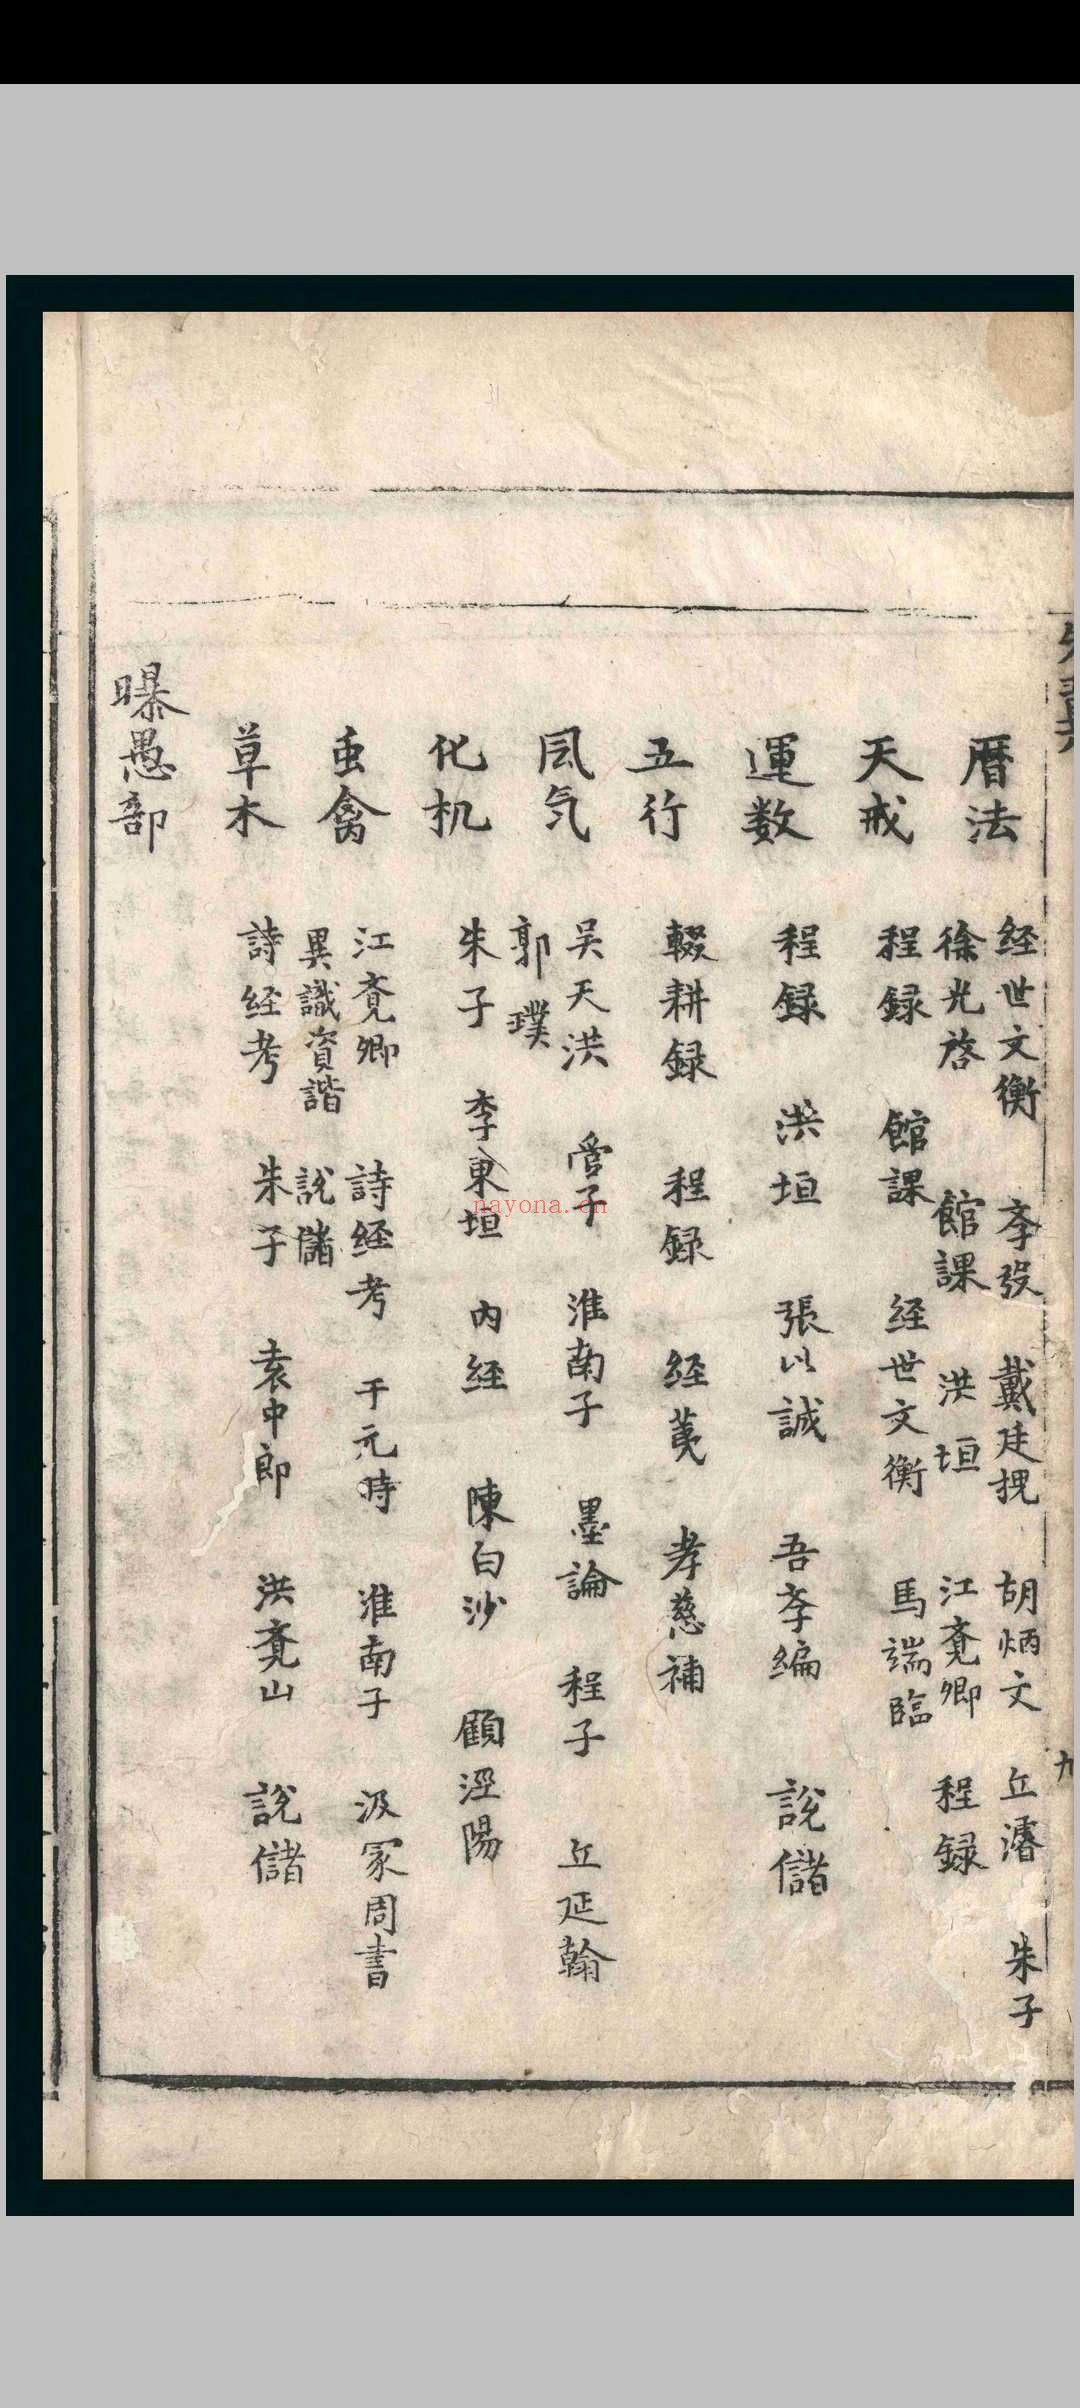 曆法
经世文衡 李弢 戴廷挸 胡炳文 丘濬 朱子
徐光啓 館課 洪垣 江斍卿 程録
天戒
程録 館課 经世文衡 馬端臨
運数
程録 洪垣 張以誠 吾李編 說儲
五行
輟耕録 程録 经荑 孝慈補
风气
吴天洪 管子 淮南子 墨論 程子 丘延翰
郭璞
化机
朱子 李東垣 内経 陳白沙 顧涇陽
虫禽
江斍卿 詩経考 干元時 淮南子 汲冢周書
異識資諧 說儲
草木
詩経考 朱子 袁中郎 洪斍山 說儲
曝愚部
九
nayona.cn